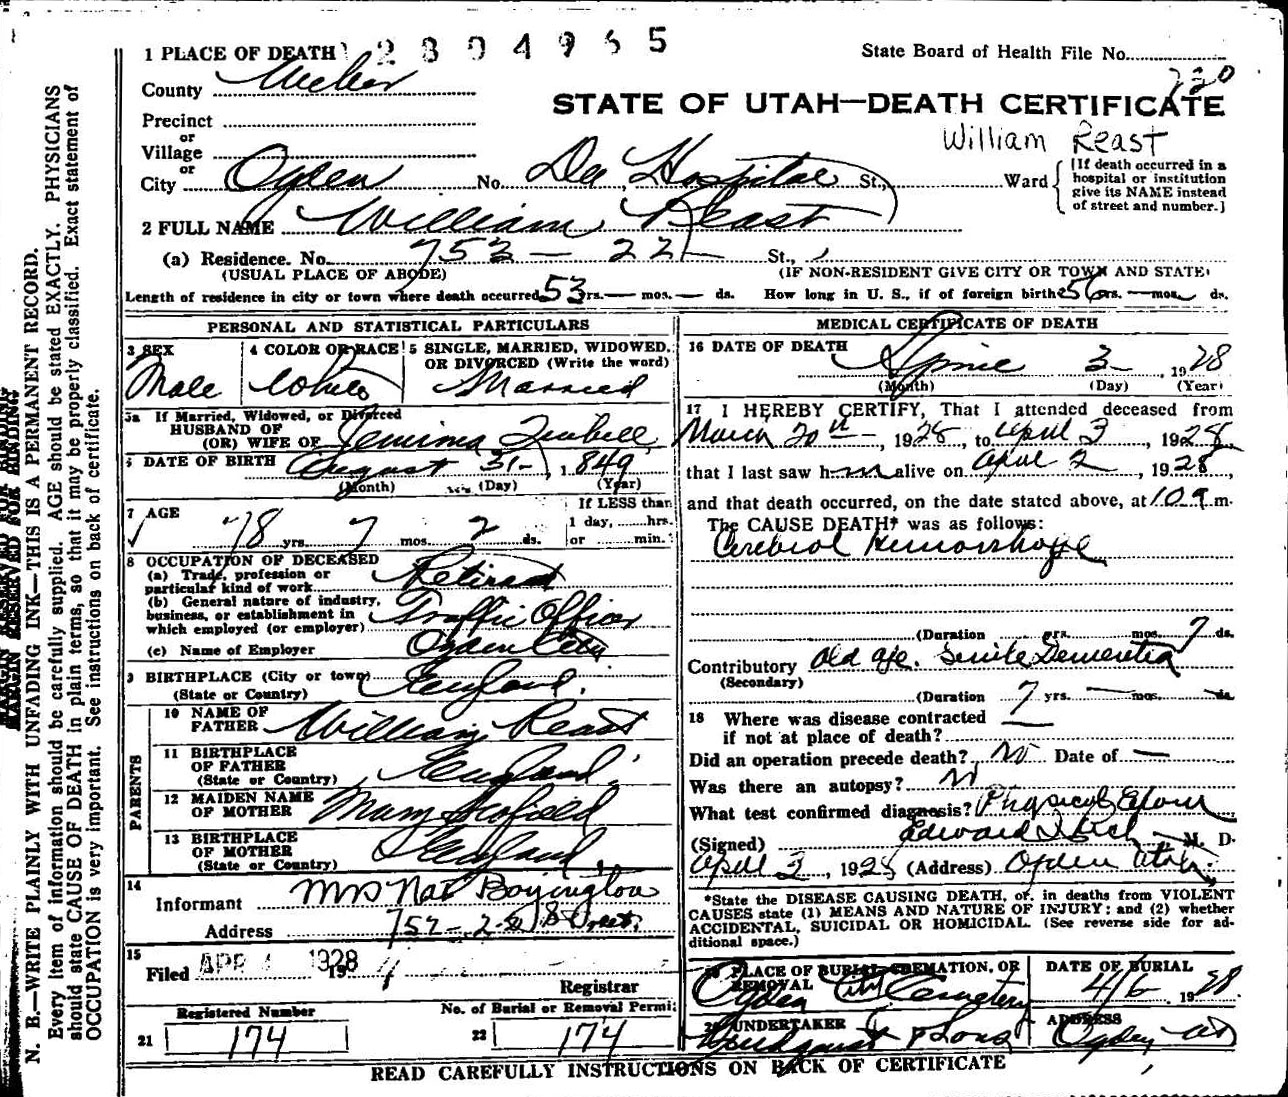 1 PLACE OF DEATH 2804965
State Board of Health File No.
720
County Weber
STATE OF UTAH—DEATH CERTIFICATE
Precinct
William Reast
or
Village
or
City Ogden No. Dee Hospital St., Ward
[If death occurred in a hospital or institution give its NAME instead of street and number.]
2 FULL NAME William Reast
(a) Residence. No. 753 - 22 St.,
(USUAL PLACE OF ABODE) (IF NON-RESIDENT GIVE CITY OR TOWN AND STATE)
Length of residence in city or town where death occurred 53 yrs. — mos. — ds. How long in U. S., if of foreign birth? 56 yrs. — mos. ds.
PERSONAL AND STATISTICAL PARTICULARS
3 SEX
Male
4 COLOR OR RACE
White
5 SINGLE, MARRIED, WIDOWED, OR DIVORCED (Write the word)
Married
5a If Married, Widowed, or Divorced
HUSBAND OF
(OR) WIFE OF Jemima
6 DATE OF BIRTH August 31- 1849
(Month) (Day) (Year)
7 AGE
78 yrs. 7 mos. 2 ds.
If LESS than
1 day, hrs.
or min.
8 OCCUPATION OF DECEASED
(a) Trade, profession or
particular kind of work Retired
(b) General nature of industry,
business, or establishment in
which employed (or employer) Traffic Officer
(c) Name of Employer Ogden City
9 BIRTHPLACE (City or town)
(State or Country) England.
PARENTS
10 NAME OF
FATHER William Reast
11 BIRTHPLACE
OF FATHER
(State or Country) England
12 MAIDEN NAME
OF MOTHER Mary Scofield
13 BIRTHPLACE
OF MOTHER
(State or Country) England
14
Informant Mrs Nat Boyington
Address
15
Filed APR 4 1928
Registrar
Registered Number
21 174
No. of Burial or Removal Permit
22 174
MEDICAL CERTIFICATE OF DEATH
16 DATE OF DEATH
April 3 1928
(Month) (Day) (Year)
17 I HEREBY CERTIFY, That I attended deceased from
March 20th 1928, to April 3, 1928,
that I last saw him alive on April 2, 1928
and that death occurred, on the date stated above, at 10 a m.
The CAUSE DEATH* was as follows:
Cerebral Hemorrhage
(Duration yrs. mos. 7 ds.
Contributory Old age. Senile Dementia
(Secondary)
(Duration 7 yrs. — mos. — ds.
18 Where was disease contracted
if not at place of death? —
Did an operation precede death? No Date of —
Was there an autopsy? No
What test confirmed diagnosis? Physical Exam
(Signed) Edward I. Rich M. D.
April 3, 1928 (Address) Ogden Utah.
*State the DISEASE CAUSING DEATH, or, in deaths from VIOLENT
CAUSES state (1) MEANS AND NATURE OF INJURY; and (2) whether
ACCIDENTAL, SUICIDAL OR HOMICIDAL. (See reverse side for ad-
ditional space.)
19 PLACE OF BURIAL, CREMATION, OR
REMOVAL
Ogden City Cemetery
DATE OF BURIAL
4/6 1928
20 UNDERTAKER
Lindquist & Sons
ADDRESS
Ogden Ut
READ CAREFULLY INSTRUCTIONS ON BACK OF CERTIFICATE
MARGIN RESERVED FOR BINDING
N. B.—WRITE PLAINLY WITH UNFADING INK—THIS IS A PERMANENT RECORD.
Every item of information should be carefully supplied. AGE should be stated EXACTLY. PHYSICIANS
should state CAUSE OF DEATH in plain terms, so that it may be properly classified. Exact statement of
OCCUPATION is very important. See instructions on back of certificate.